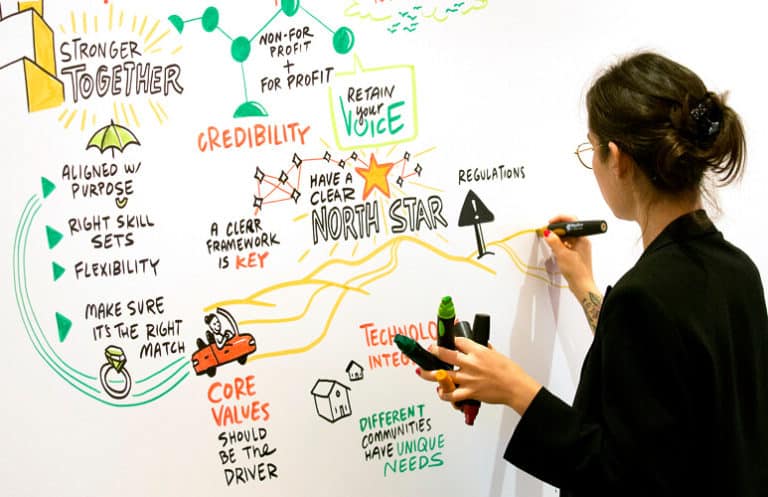 STRONGER
TOGETHER
NON-FOR
PROFIT
+
FOR PROFIT
RETAIN
your
VOICE
CREDIBILITY
ALIGNED W/
PURPOSE
RIGHT SKILL
SETS
FLEXIBILITY
MAKE SURE
IT'S THE RIGHT
MATCH
A CLEAR
FRAMEWORK
IS KEY
HAVE A
CLEAR
NORTH STAR
REGULATIONS
!
CORE
VALUES
SHOULD
BE THE
DRIVER
DIFFERENT
COMMUNITIES
HAVE UNIQUE
NEEDS